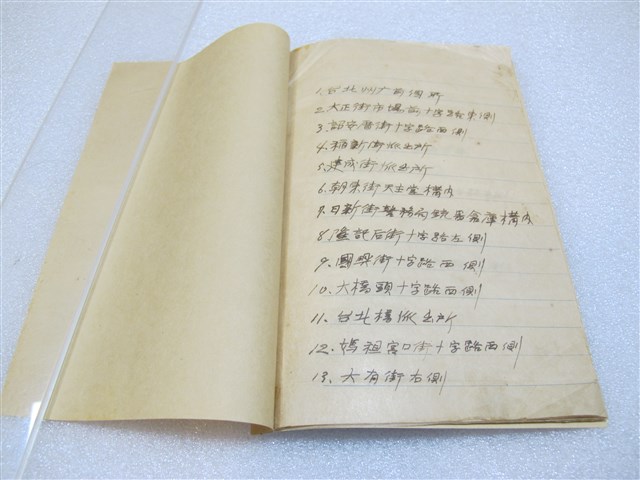 1. 台北州庁前側所
2. 大正街市場前十字路東側
3. 詔安厝街十字路西側
4. 稻新街派出所
5. 建成街派出所
6. 朝東街天主堂構內
7. 日新街警務局 倉庫構內
8. 后街十字路左側
9. 國興街十字路西側
10. 大橋頭十字路西側
11. 台北橋派出所
12. 媽祖宮口街十字路西側
13. 大有街右側